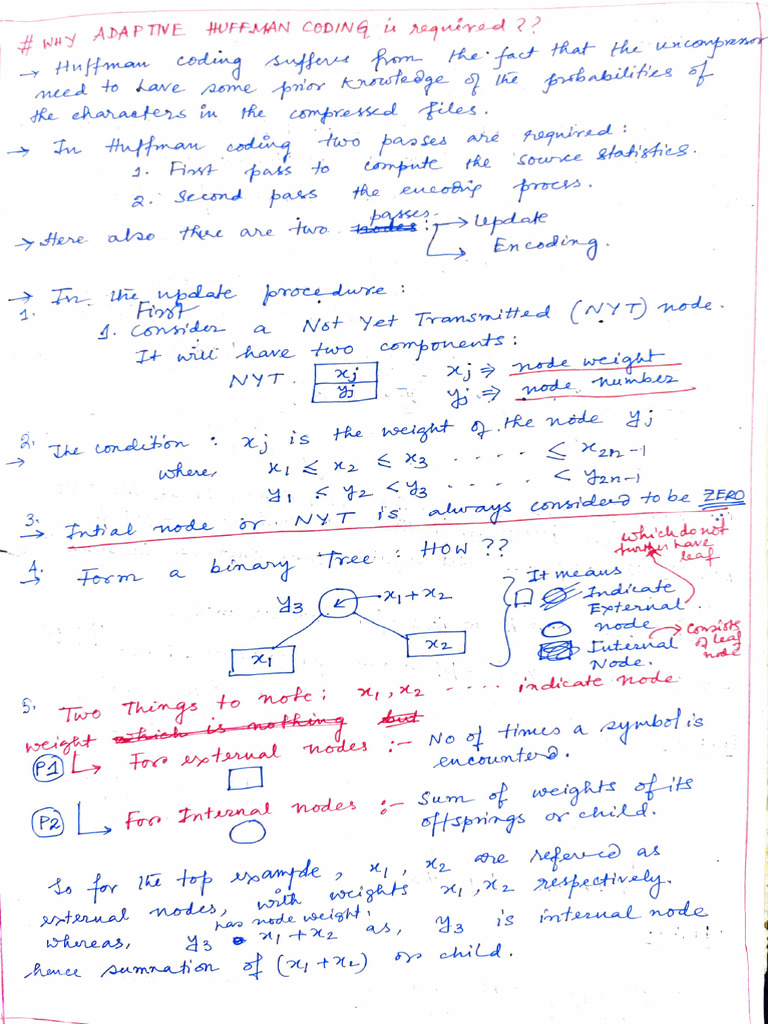 # WHY ADAPTIVE HUFFMAN CODING is required??
→ Huffman coding suffers from the fact that the uncompressor
need to have some prior knowledge of the probabilities of
the characters in the compressed files.
→ In Huffman coding two passes are required:
1. First pass to compute the source statistics.
2. Second pass the encoding process.
passes
→ Here also there are two nodes: → Update
→ Encoding.
→ In the update procedure:
1. First
1. Consider a Not Yet Transmitted (NYT) node.
It will have two components:
NYT xj xj ⇒ node weight
yj yj ⇒ node number
2. → The condition: xj is the weight of the node yj
where, x1 ≤ x2 ≤ x3 ..... ≤ x2n-1
y1 ≤ y2 < y3 ..... < y2n-1
3. → Intial node or NYT is always considerd to be ZERO
4. → Form a binary Tree: HOW??
which do not
further have
leaf
y3 x1+x2
x1 x2
It means
Indicate
External
node
Internal
Node.
→ Consists
of leaf
node
5. Two Things to note: x1, x2 ..... indicate node
weight which is nothing but
P1 → For external nodes :- No of times a symbol is
encountered.
P2 → For Internal nodes :- Sum of weights of its
offsprings or child.
So for the top example, x1, x2 are refered as
external nodes, with weights x1, x2 respectively.
has node weight
whereas, y3 x1+x2 as, y3 is internal node
hence sumnation of (x1+x2) or child.